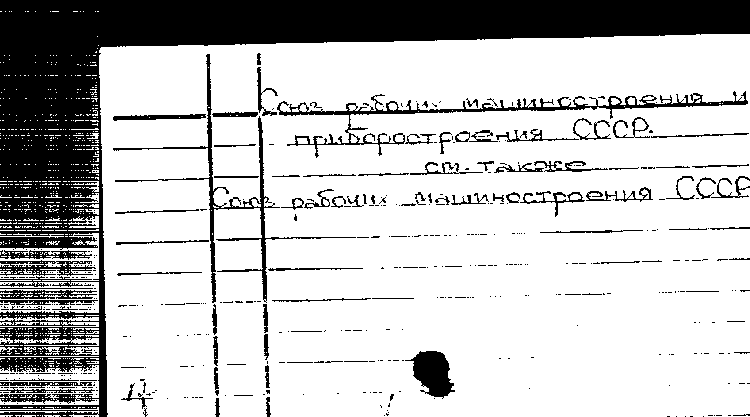 Союз рабочих машиностроения и
приборостроения СССР.
см. также
Союз рабочих машиностроения СССР